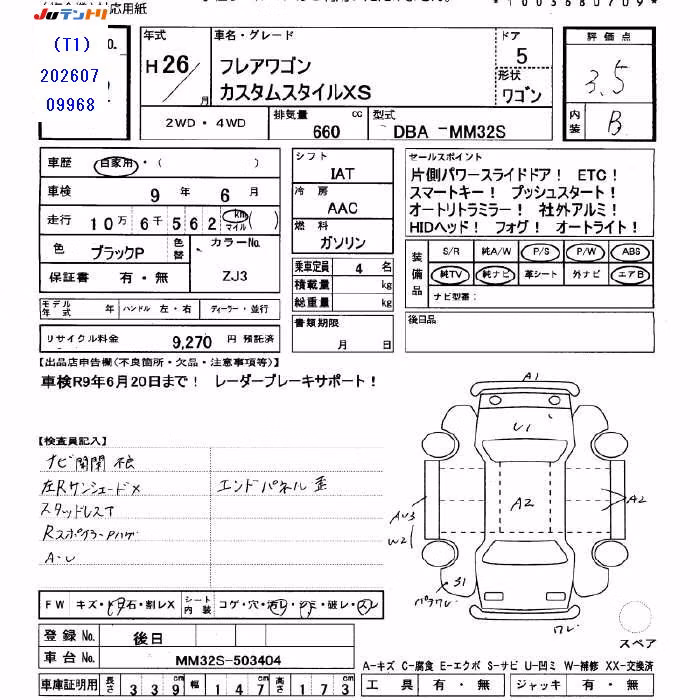 対応用紙
Juテントリ
*1003680709*
(T1)
202607
09968
No.
年式
H26/月
車名・グレード
フレアワゴン
カスタムスタイルXS
ドア
5
形状
ワゴン
評価点
3.5
内装
B
2WD・4WD
排気量
660 cc
型式
DBA －MM32S
車歴 自家用・( )
車検 9 年 6 月
走行 10万6千562 km マイル ( )
色 ブラックP
色替
カラーNo.
ZJ3
保証書 有・無
シフト
IAT
冷房
AAC
燃料
ガソリン
乗車定員 4 名
積載量 kg
総重量 kg
セールスポイント
片側パワースライドドア！ ETC！
スマートキー！ プッシュスタート！
オートリトラミラー！ 社外アルミ！
HIDヘッド！ フォグ！ オートライト！
装備品
S/R 純A/W P/S P/W ABS
純TV 純ナビ 革シート 外ナビ エアB
ナビ型番：
モデル年式 年 ハンドル 左・右 ディーラー・並行
リサイクル料金 9,270 円 預託済
書類期限
月 日
後日品
【出品店申告欄(不良箇所・欠品・注意事項等)】
車検R9年6月20日まで！ レーダーブレーキサポート！
【検査員記入】
ナビ開閉不良
左Rサンシェード×
エンドパネル歪
スタッドレスT
RスポイラーPハゲ
A-U
A1
U1
A2
A2
AU3
W2
S1
バラワレ
ワレ
スペア
FW キズ・ヒ・石・割レX
シート内装
コゲ・穴・汚レ・シミ・破レ・スレ
登録No. 後日
車台No. MM32S-503404
A-キズ C-腐食 E-エクボ S-サビ U-凹ミ W-補修 XX-交換済
車庫証明用 長さ 339 幅 147 高さ 173
工具 有・無 ジャッキ 有・無